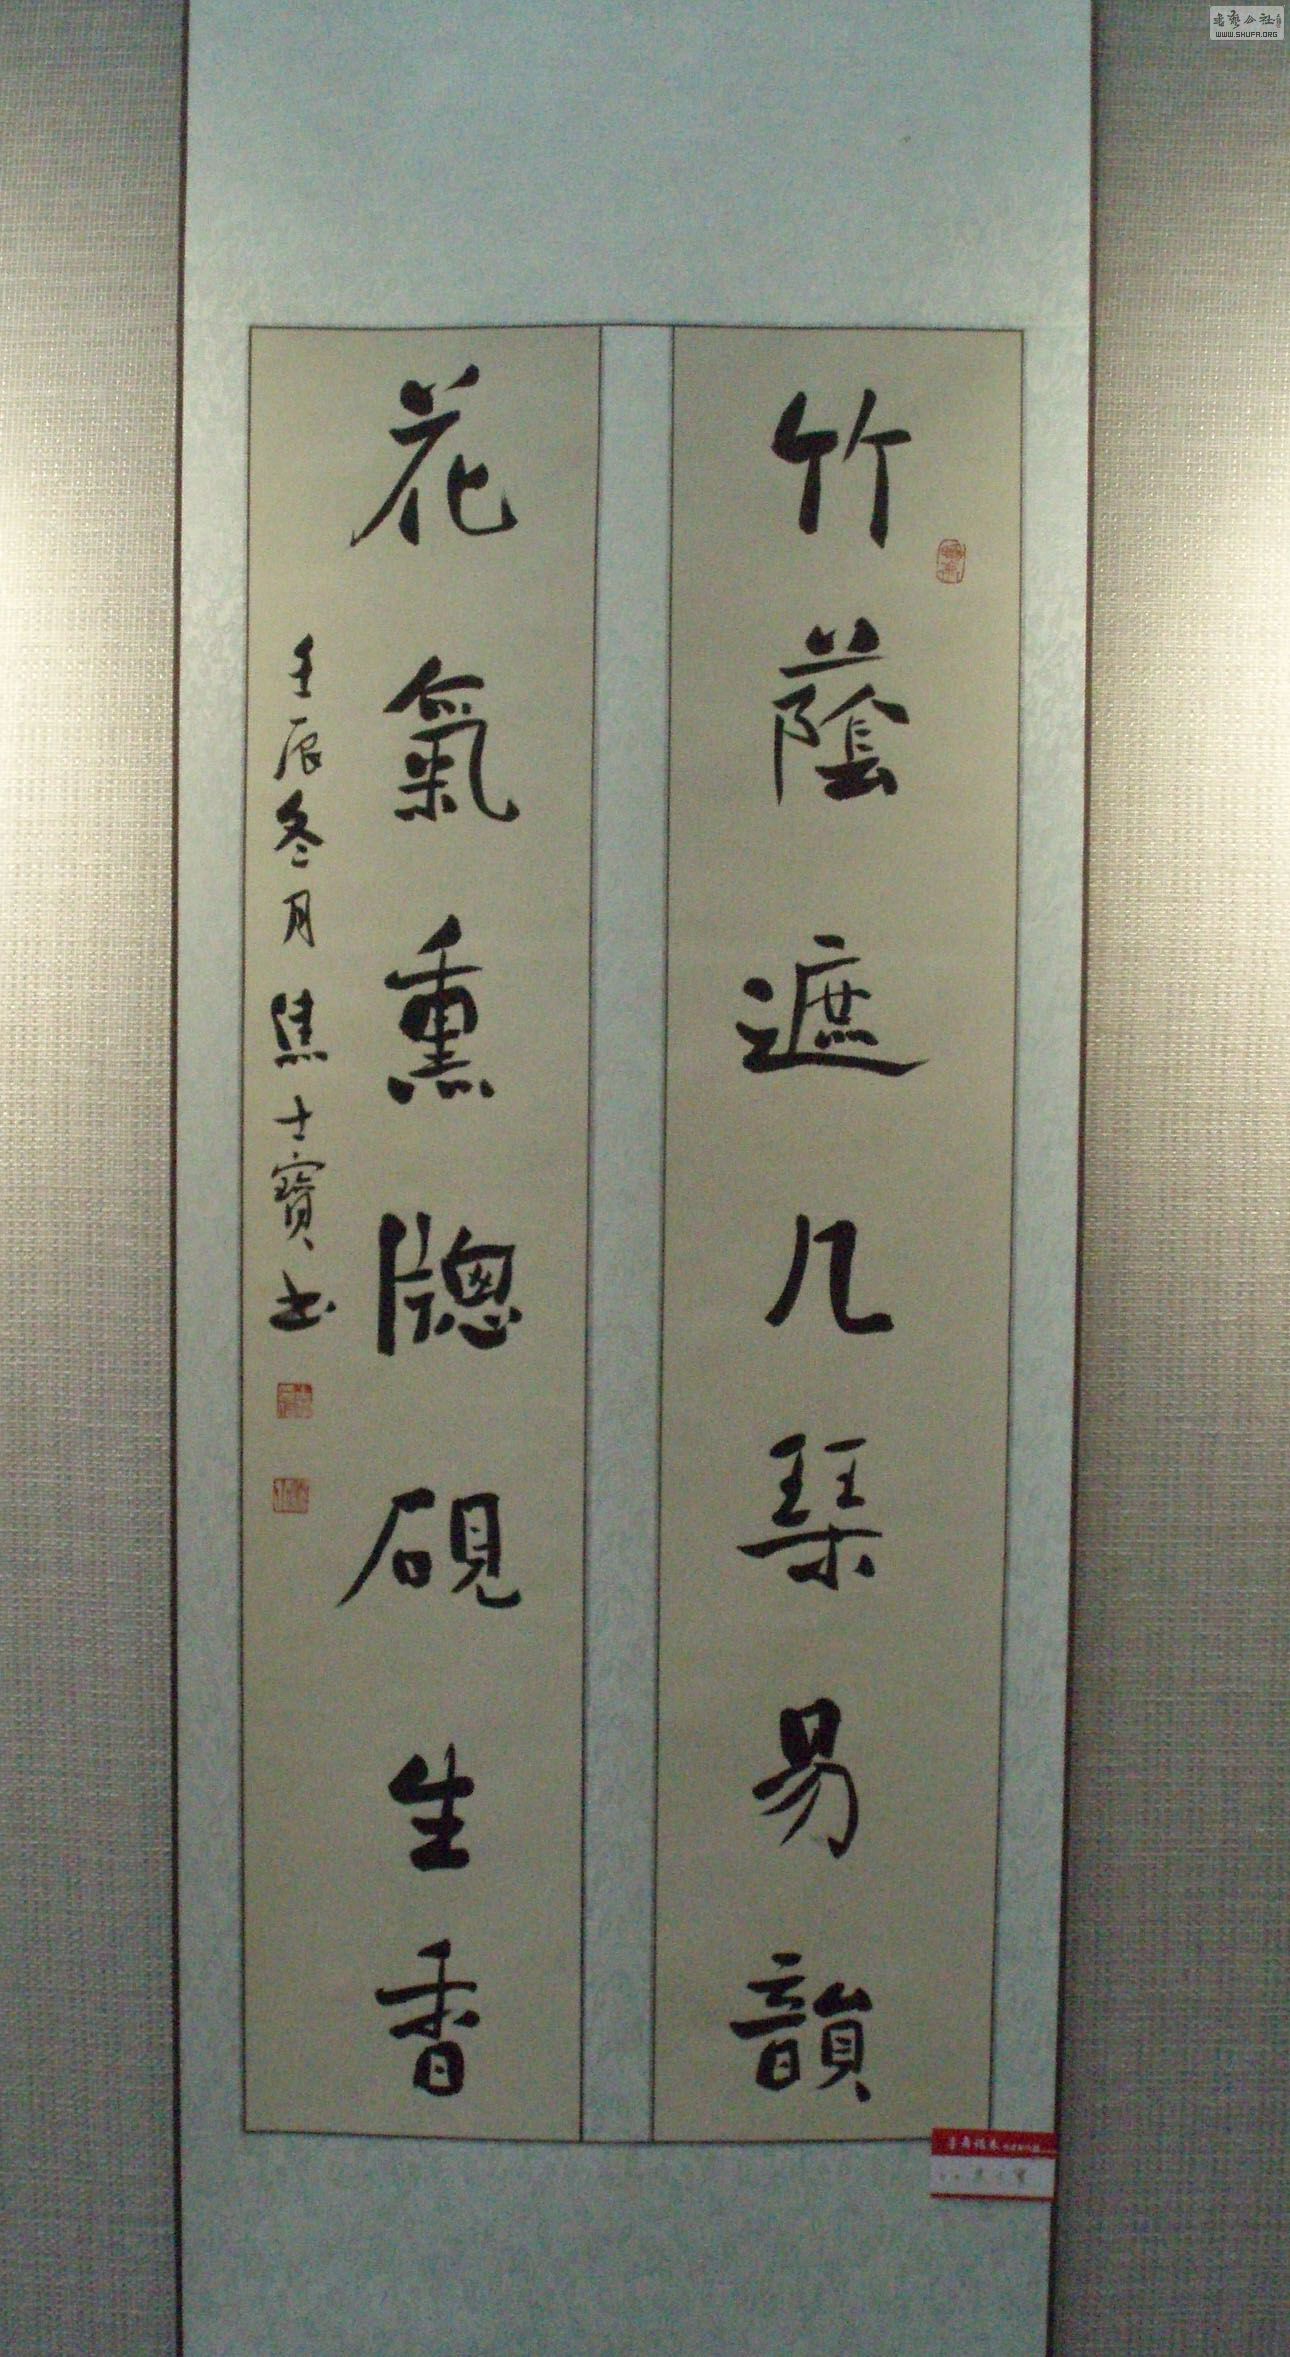 竹蔭遮几琹易韻
花氣熏牕硯生香
壬辰冬月焦士寶书
WWW.SHUFA.ORG